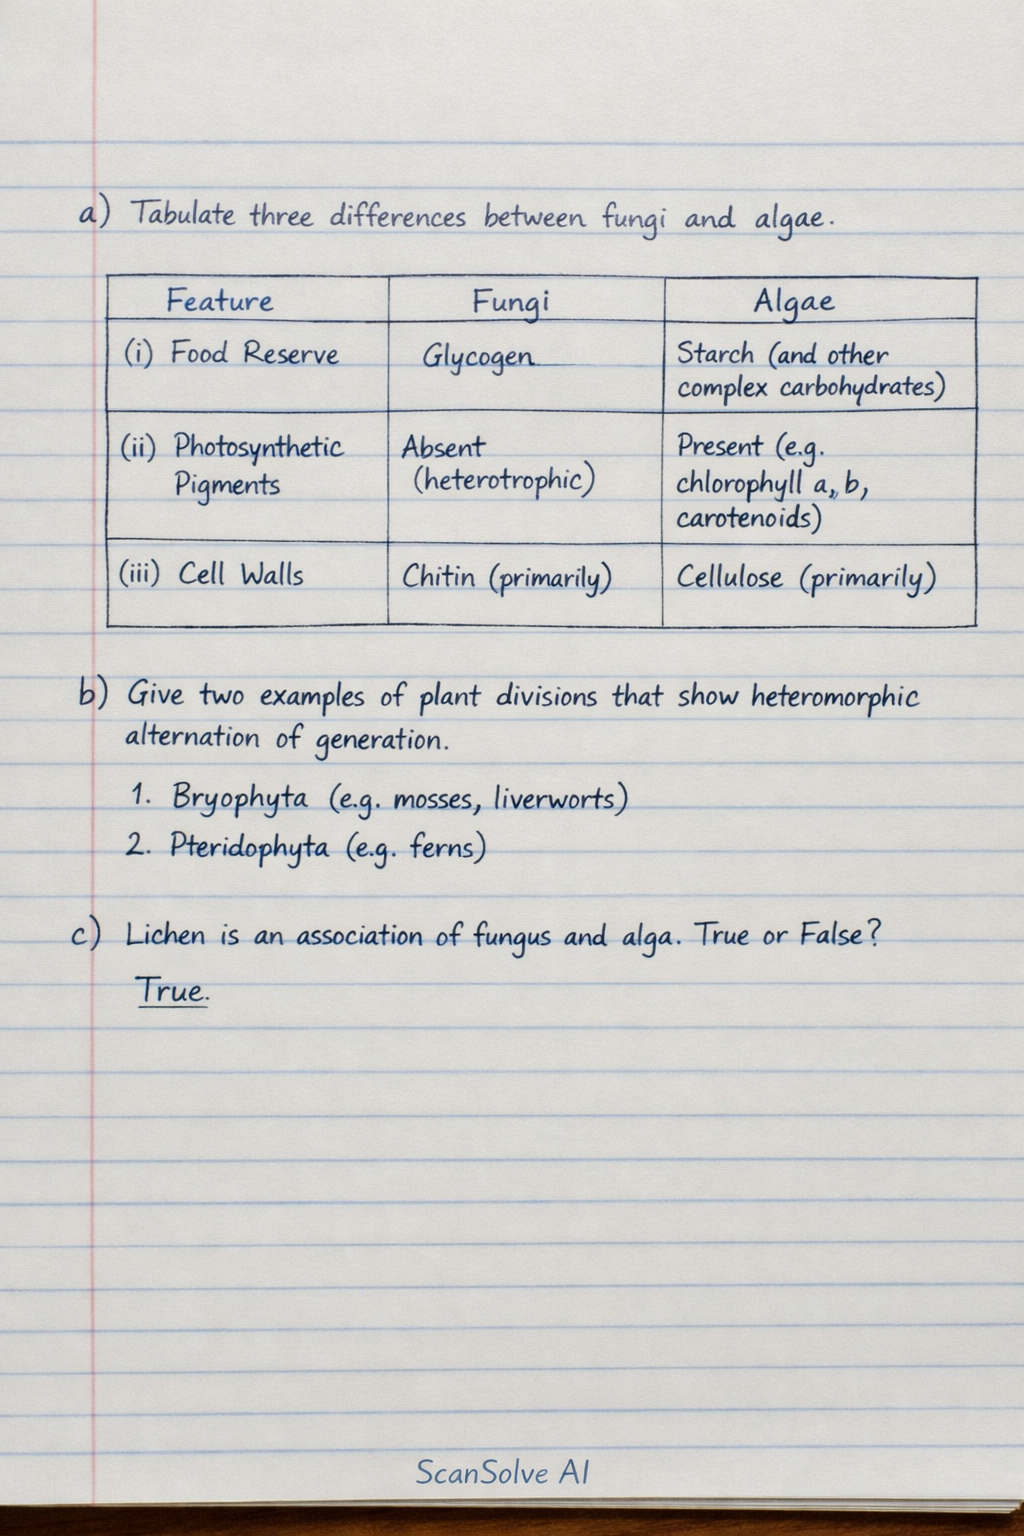 a) Tabulate three differences between fungi and algae.
Feature Fungi Algae
(i) Food Reserve Glycogen Starch (and other
complex carbohydrates)
(ii) Photosynthetic Absent Present (e.g.
Pigments (heterotrophic) chlorophyll a, b,
carotenoids)
(iii) Cell Walls Chitin (primarily) Cellulose (primarily)
b) Give two examples of plant divisions that show heteromorphic
alternation of generation.
1. Bryophyta (e.g. mosses, liverworts)
2. Pteridophyta (e.g. ferns)
c) Lichen is an association of fungus and alga. True or False?
True.
ScanSolve AI